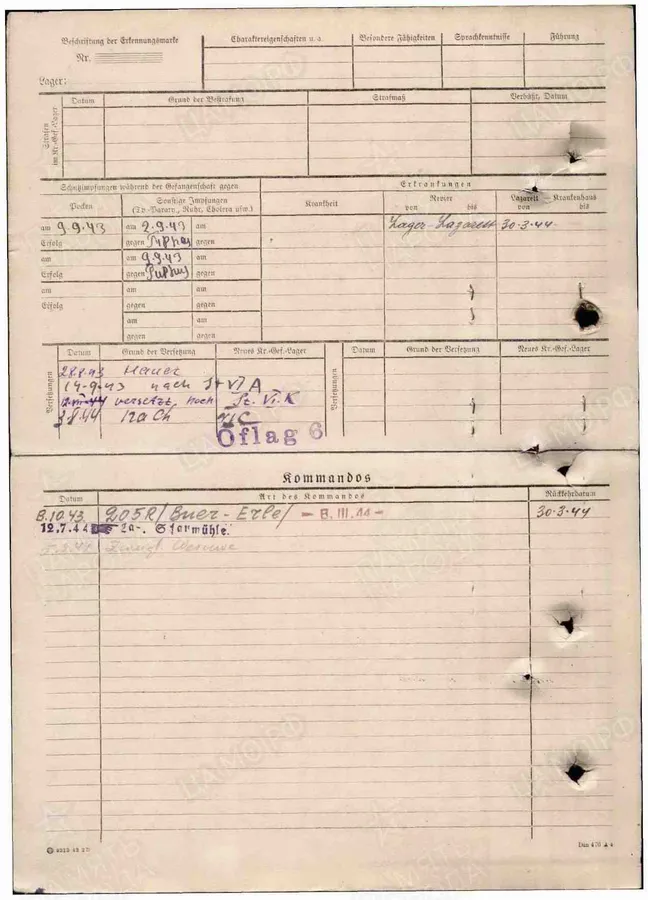 Beschriftung der Erkennungsmarke
Nr.
Lager:
Charaktereigenschaften u. a.
Besondere Fähigkeiten
Sprachkenntnisse
Führung
Strafen im Kr.-Gef.-Lager
Datum
Grund der Bestrafung
Strafmaß
Verbüßt, Datum
Schutzimpfungen während der Gefangenschaft gegen
Erkrankungen
Pocken
Sonstige Impfungen
(Ty.-Paraty., Ruhr, Cholera usw.)
Krankheit
Revier
von bis
Lazarett — Krankenhaus
von bis
am 9.9.43 am 2.9.43 am
Lager-Lazarett 30.3.44.
Erfolg gegen Typhus gegen
am am 9.9.43 am
Erfolg gegen Typhus gegen
am am am
Erfolg gegen gegen
am am
gegen gegen
Versetzungen
Datum
Grund der Versetzung
Neues Kr.-Gef.-Lager
Versetzungen
Datum
Grund der Versetzung
Neues Kr.-Gef.-Lager
28.8.43 Hemer
14.9.43 nach St VI A
versetzt nach St. VI. K
3.8.44 nach VI C
Oflag 6
Kommandos
Datum
Art des Kommandos
Rückkehrdatum
8.10.43. 205R/Buer-Erle/ - 8. III. 44 - 30.3.44
12.7.44 Stormühle.
4323 43 2 D
Din 476 A 4
ЦАМОРФ
ПАМЯТЬ НАРОДА